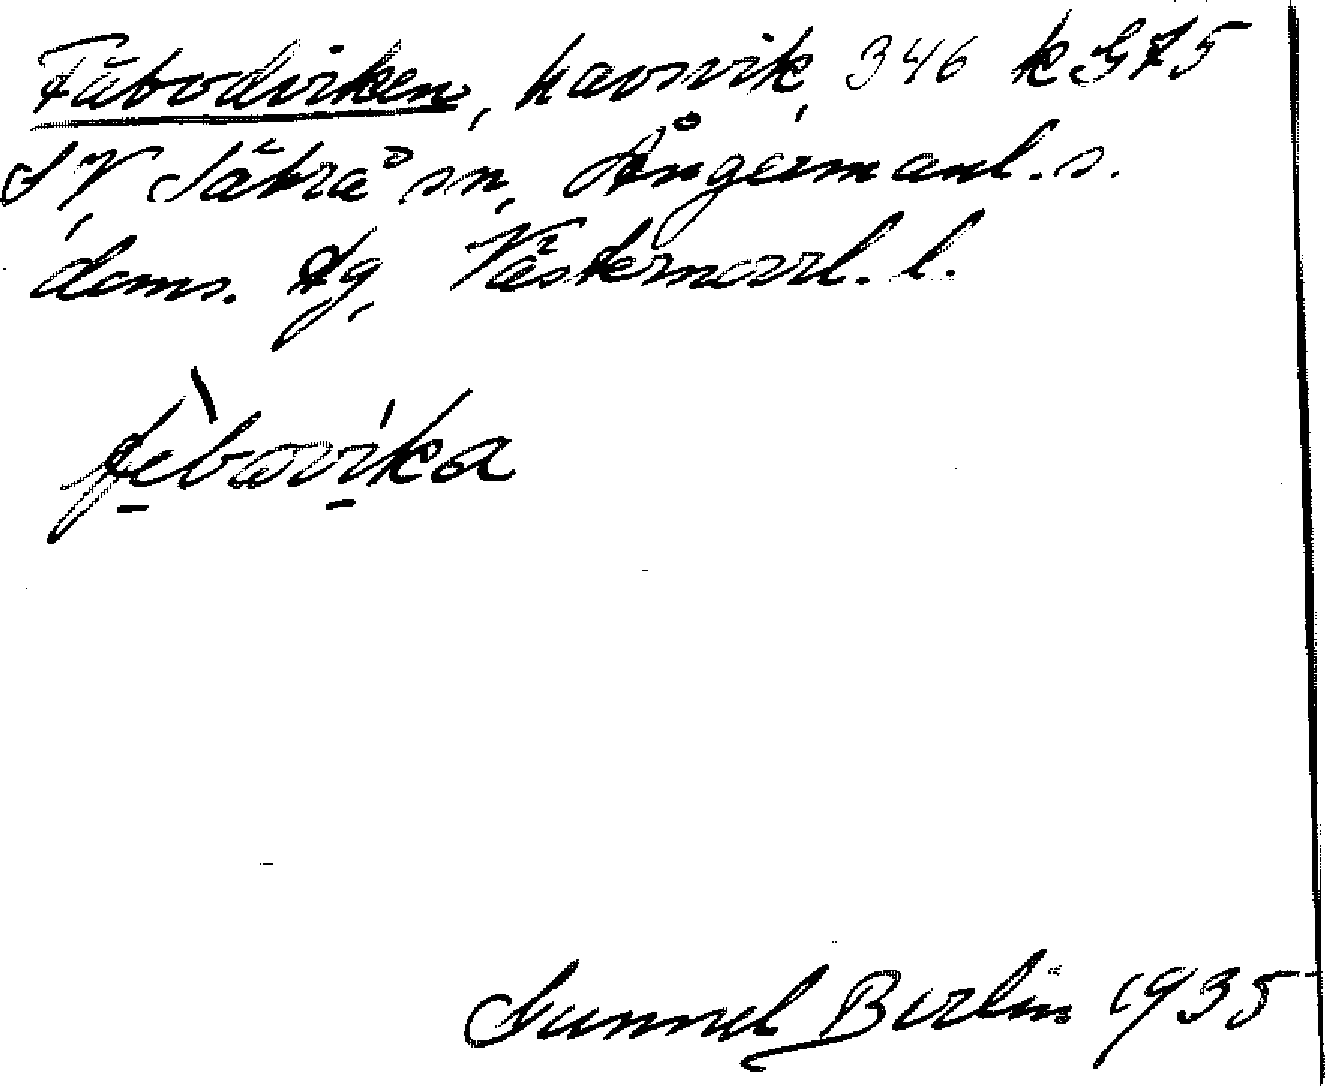 Fäbodviken, havsvik, 346 k G f 5
S V, Säbrå sn, Ångermanl. s.
doms. Ag, Västernorrl. l.
Gunnel Berlin 1935